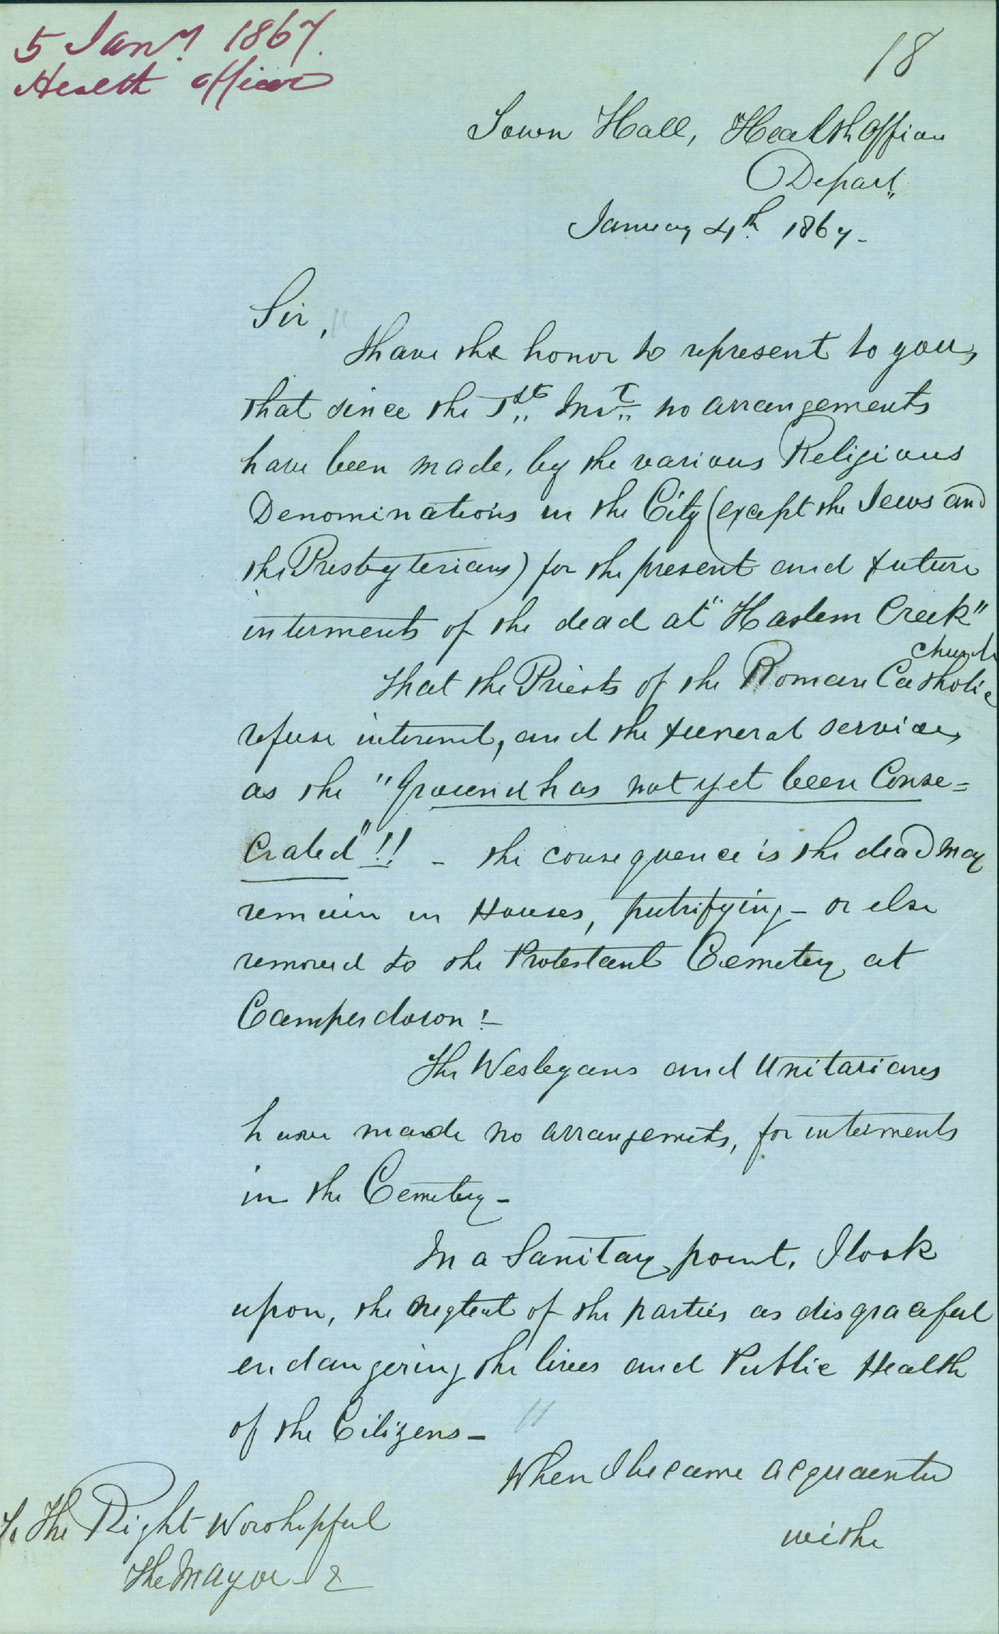 5 Jany. 1867.
Health officer
18
Town Hall, Health officers
Depart.
January 4th 1867.
Sir,
I have the honor to represent to you,
that since the 1st Inst. no arrangements
have been made, by the various Religious
Denominations in the City (except the Jews and
the Presbyterians) for the present and future
interments of the dead at "Haslem Creek"
church
that the Priests of the Roman Catholic
refuse interment, and the funeral services,
as the "Ground has not yet been Conse=
crated"!! - the consequence is the dead may
remain in Houses, putrifying - or else
removed to the Protestant Cemetery at
Camperdown! -
The Wesleyans and Unitarians
have made no arrangements, for interments
in the Cemetery -
In a Sanitary point, I look
upon, the neglect of the parties as disgraceful
endangering the lives and Public Health
of the Citizens -
When I became acquainted
withe
To The Right Worshipful
The Mayor &